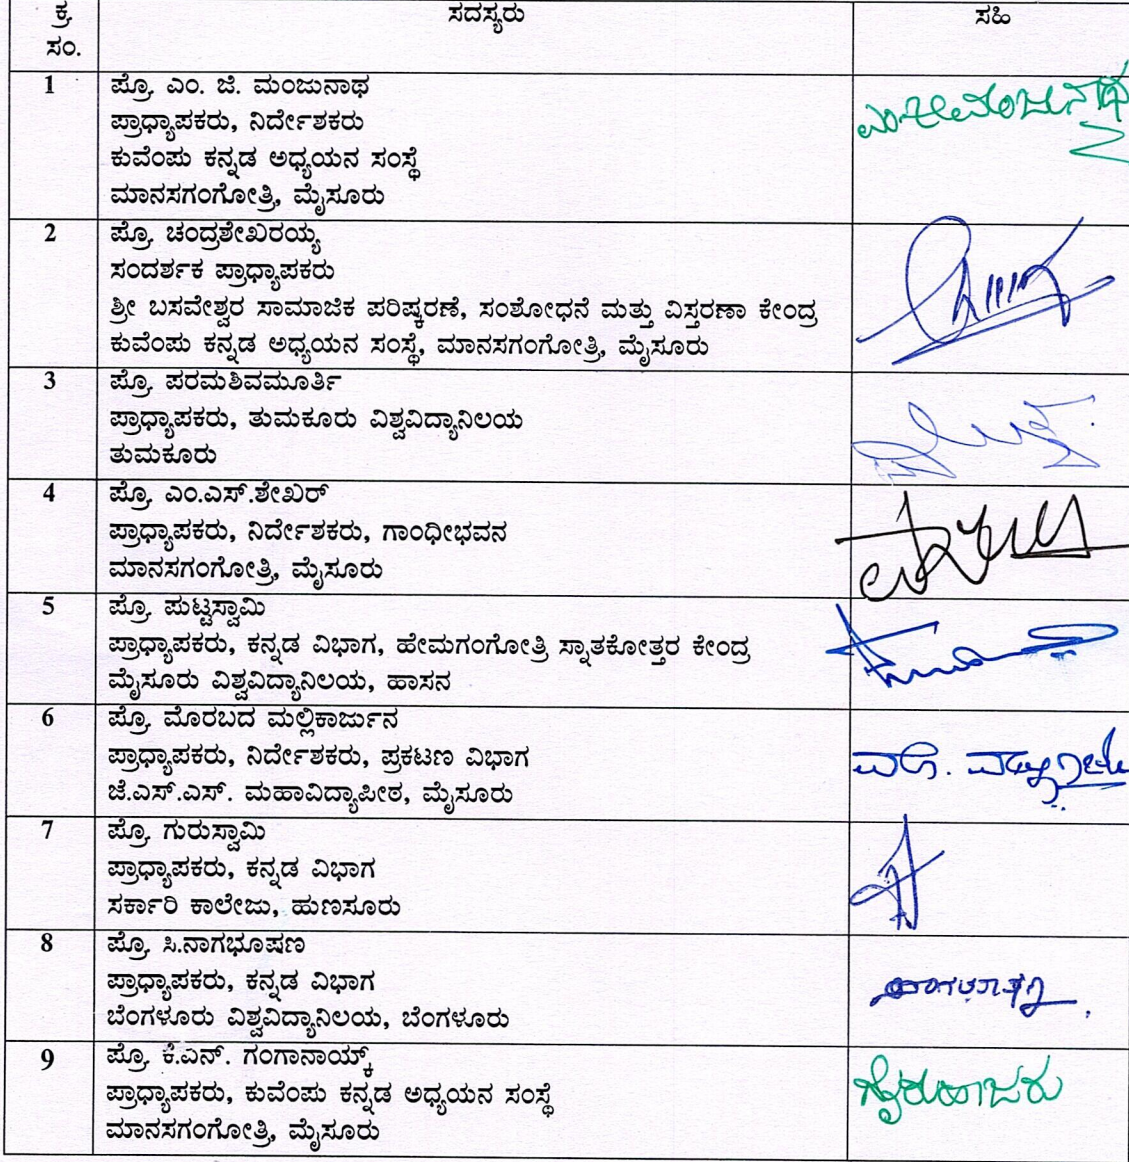 ಕ್ರ. ಸದಸ್ಯರು ಸಹಿ
ಸಂ.
1 ಪ್ರೊ. ಎಂ. ಜಿ. ಮಂಜುನಾಥ
ಪ್ರಾಧ್ಯಾಪಕರು, ನಿರ್ದೇಶಕರು
ಕುವೆಂಪು ಕನ್ನಡ ಅಧ್ಯಯನ ಸಂಸ್ಥೆ
ಮಾನಸಗಂಗೋತ್ರಿ, ಮೈಸೂರು
ಎಂ.ಜಿ.ಮಂಜುನಾಥ
2 ಪ್ರೊ. ಚಂದ್ರಶೇಖರಯ್ಯ
ಸಂದರ್ಶಕ ಪ್ರಾಧ್ಯಾಪಕರು
ಶ್ರೀ ಬಸವೇಶ್ವರ ಸಾಮಾಜಿಕ ಪರಿಷ್ಕರಣೆ, ಸಂಶೋಧನೆ ಮತ್ತು ವಿಸ್ತರಣಾ ಕೇಂದ್ರ
ಕುವೆಂಪು ಕನ್ನಡ ಅಧ್ಯಯನ ಸಂಸ್ಥೆ, ಮಾನಸಗಂಗೋತ್ರಿ, ಮೈಸೂರು
3 ಪ್ರೊ. ಪರಮಶಿವಮೂರ್ತಿ
ಪ್ರಾಧ್ಯಾಪಕರು, ತುಮಕೂರು ವಿಶ್ವವಿದ್ಯಾನಿಲಯ
ತುಮಕೂರು
4 ಪ್ರೊ. ಎಂ.ಎಸ್.ಶೇಖರ್
ಪ್ರಾಧ್ಯಾಪಕರು, ನಿರ್ದೇಶಕರು, ಗಾಂಧೀಭವನ
ಮಾನಸಗಂಗೋತ್ರಿ, ಮೈಸೂರು
5 ಪ್ರೊ. ಪುಟ್ಟಸ್ವಾಮಿ
ಪ್ರಾಧ್ಯಾಪಕರು, ಕನ್ನಡ ವಿಭಾಗ, ಹೇಮಗಂಗೋತ್ರಿ ಸ್ನಾತಕೋತ್ತರ ಕೇಂದ್ರ
ಮೈಸೂರು ವಿಶ್ವವಿದ್ಯಾನಿಲಯ, ಹಾಸನ
6 ಪ್ರೊ. ಮೊರಬದ ಮಲ್ಲಿಕಾರ್ಜುನ
ಪ್ರಾಧ್ಯಾಪಕರು, ನಿರ್ದೇಶಕರು, ಪ್ರಕಟಣ ವಿಭಾಗ
ಜೆ.ಎಸ್.ಎಸ್. ಮಹಾವಿದ್ಯಾಪೀಠ, ಮೈಸೂರು
7 ಪ್ರೊ. ಗುರುಸ್ವಾಮಿ
ಪ್ರಾಧ್ಯಾಪಕರು, ಕನ್ನಡ ವಿಭಾಗ
ಸರ್ಕಾರಿ ಕಾಲೇಜು, ಹುಣಸೂರು
8 ಪ್ರೊ. ಸಿ.ನಾಗಭೂಷಣ
ಪ್ರಾಧ್ಯಾಪಕರು, ಕನ್ನಡ ವಿಭಾಗ
ಬೆಂಗಳೂರು ವಿಶ್ವವಿದ್ಯಾನಿಲಯ, ಬೆಂಗಳೂರು
9 ಪ್ರೊ. ಕೆ.ಎನ್. ಗಂಗಾನಾಯ್ಕ್
ಪ್ರಾಧ್ಯಾಪಕರು, ಕುವೆಂಪು ಕನ್ನಡ ಅಧ್ಯಯನ ಸಂಸ್ಥೆ
ಮಾನಸಗಂಗೋತ್ರಿ, ಮೈಸೂರು
ಗೈರುಹಾಜರು